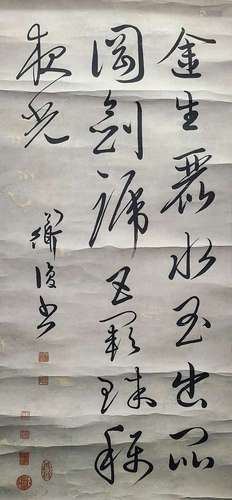 金生麗水玉出崑
岡劍號巨闕珠稱
夜光
書